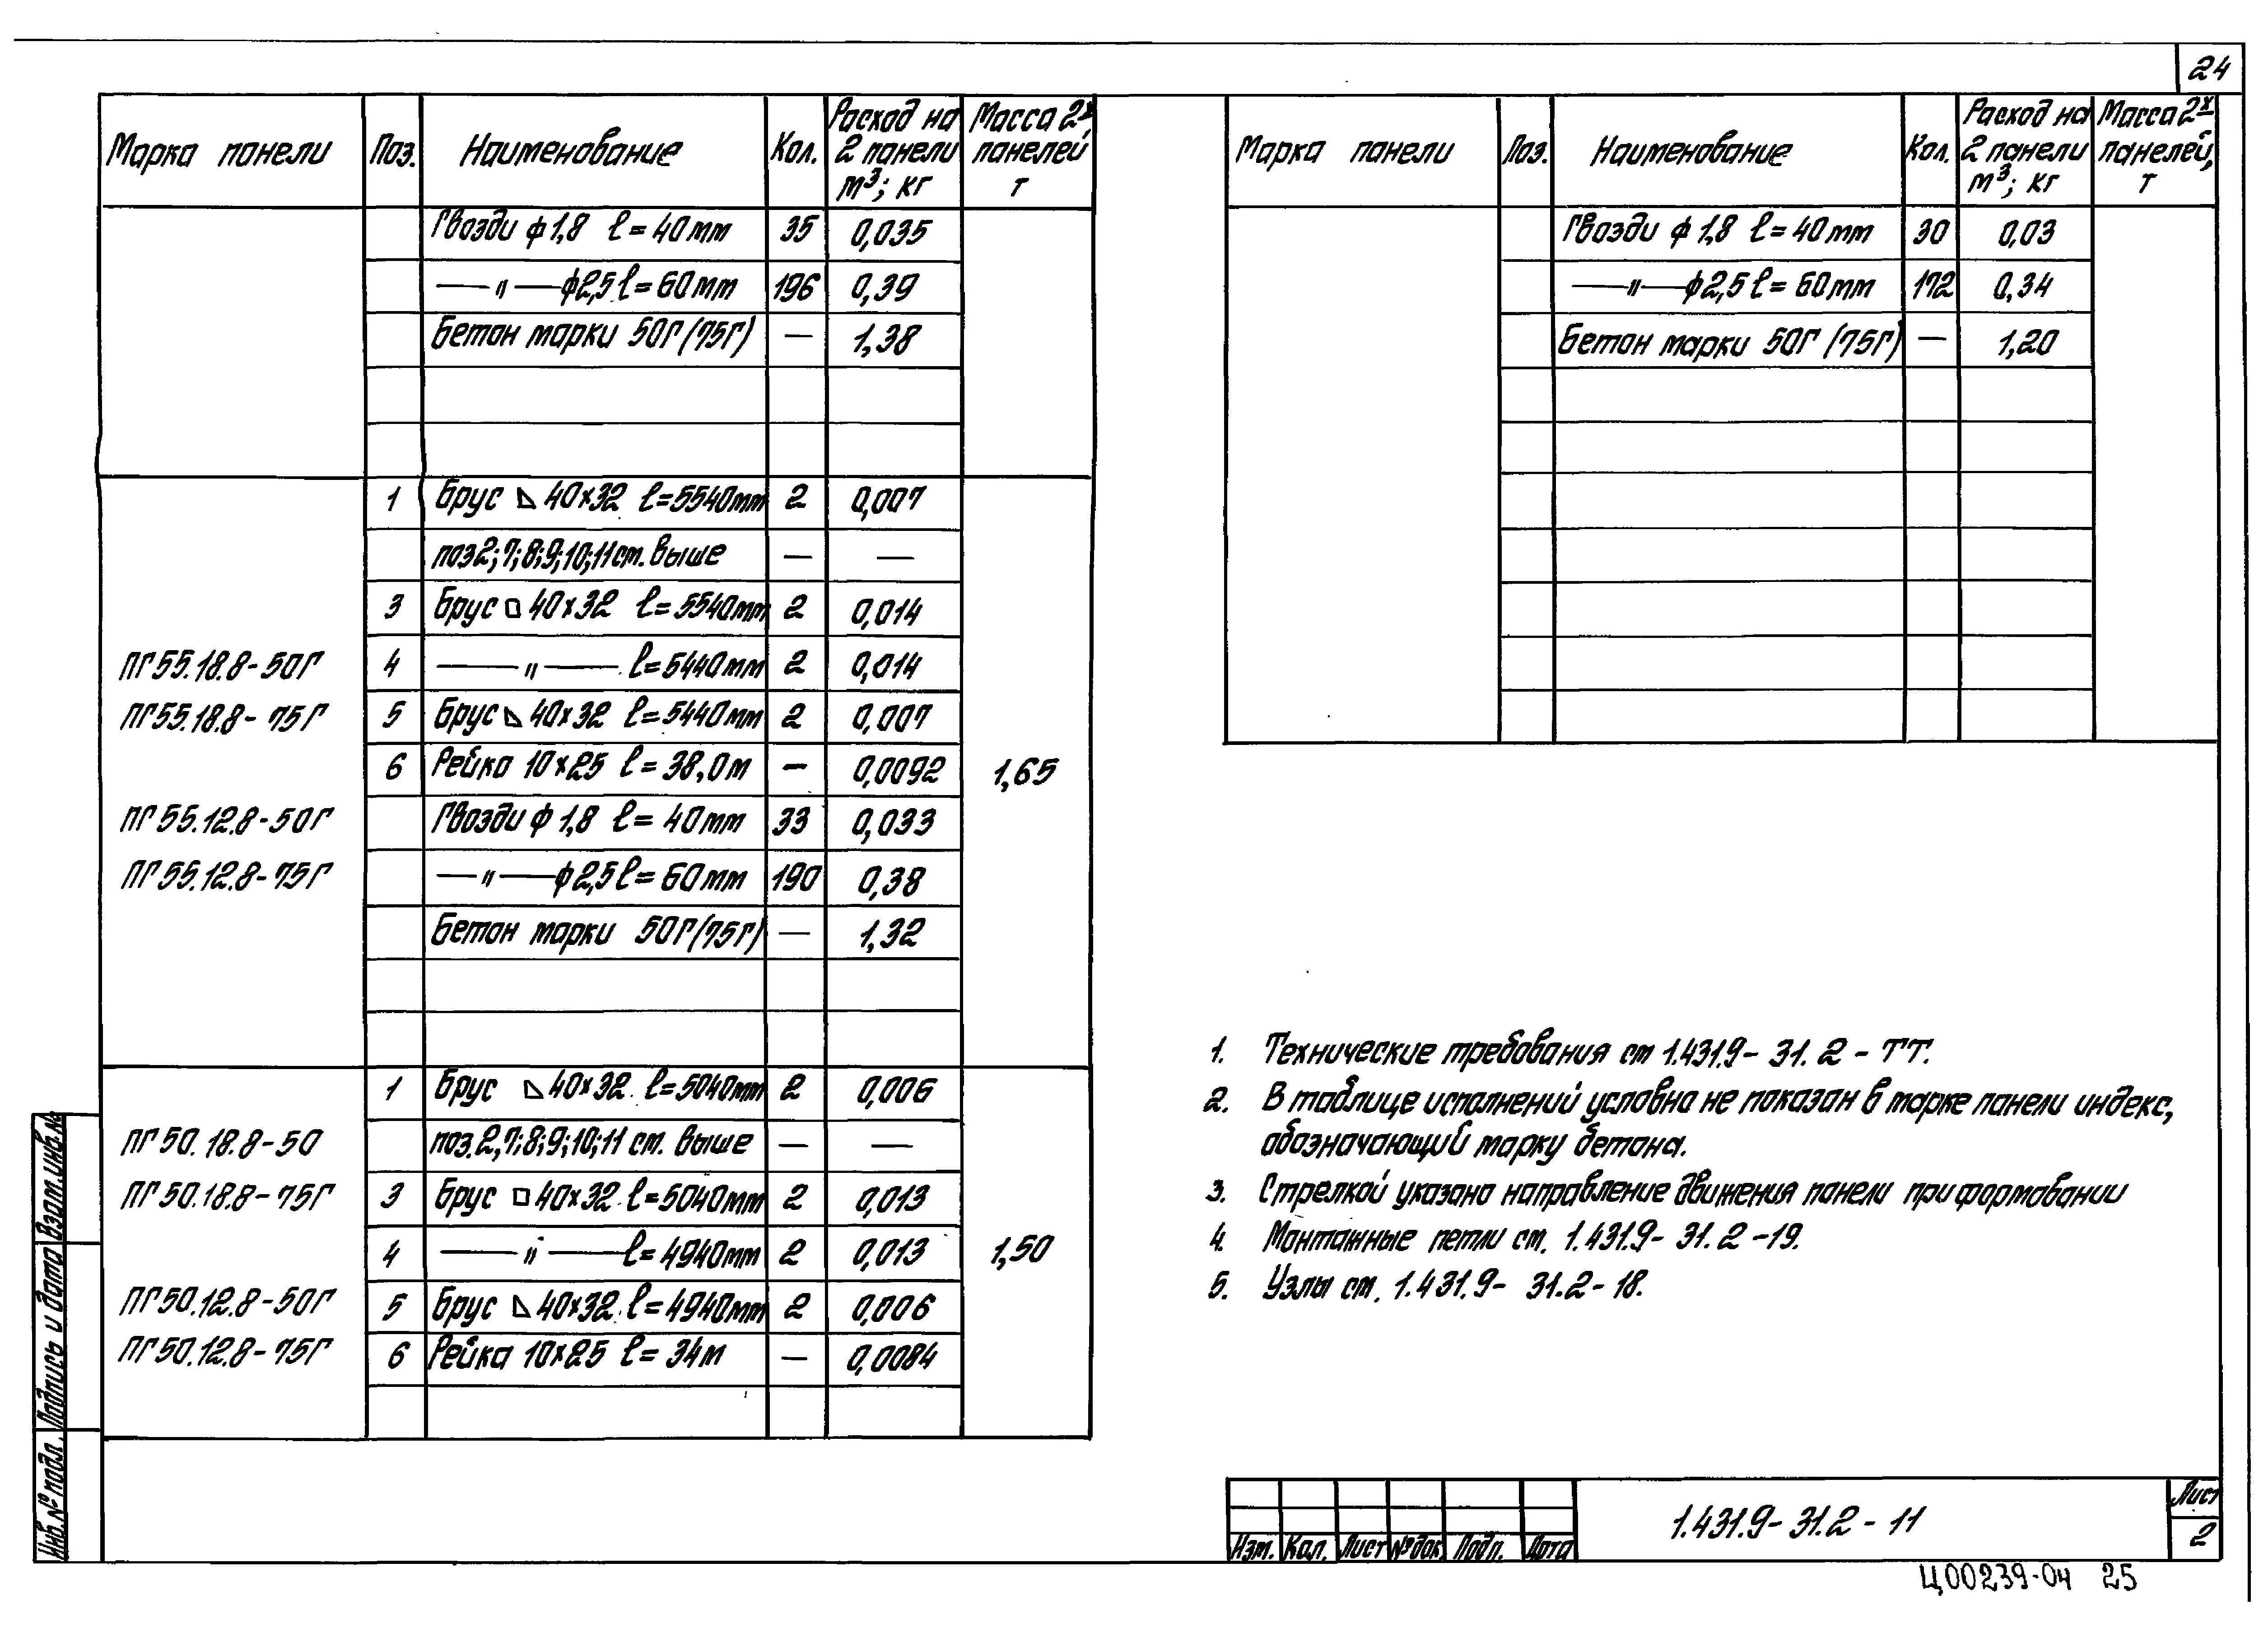 24
Марка панели Поз. Наименование Кол. Расход на 2 панели м³; кг Масса 2х панелей, т
Гвозди ф1,8 ℓ=40мм 35 0,035
—"—ф2,5 ℓ=60мм 196 0,39
Бетон марки 50Г(75Г) — 1,38
1 Брус ◺ 40×32 ℓ=5540мм 2 0,007
поз2;7;8;9;10;11 см. выше — —
3 Брус □ 40×32 ℓ=5540мм 2 0,014
ПГ55.18.8-50Г 4 —"— ℓ=5440мм 2 0,014
ПГ55.18.8-75Г 5 Брус ◺ 40×32 ℓ=5440мм 2 0,007
6 Рейка 10×25 ℓ=38,0м — 0,0092 1,65
ПГ55.12.8-50Г Гвозди ф1,8 ℓ=40мм 33 0,033
ПГ55.12.8-75Г —"—ф2,5 ℓ=60мм 190 0,38
Бетон марки 50Г(75Г) — 1,32
1 Брус ◺ 40×32 ℓ=5040мм 2 0,006
ПГ50.18.8-50 поз.2,7;8;9;10;11 см. выше — —
ПГ50.18.8-75Г 3 Брус □ 40×32 ℓ=5040мм 2 0,013
4 —"— ℓ=4940мм 2 0,013 1,50
ПГ50.12.8-50Г 5 Брус ◺ 40×32 ℓ=4940мм 2 0,006
ПГ50.12.8-75Г 6 Рейка 10×25 ℓ=34м — 0,0084
Марка панели Поз. Наименование Кол. Расход на 2 панели м³; кг Масса 2х панелей, т
Гвозди ф1,8 ℓ=40мм 30 0,03
—"—ф2,5 ℓ=60мм 172 0,34
Бетон марки 50Г(75Г) — 1,20
1. Технические требования см 1.431.9-31.2-ТТ.
2. В таблице исполнений условно не показан в марке панели индекс,
обозначающий марку бетона.
3. Стрелкой указано направление движения панели при формовании
4. Монтажные петли см. 1.431.9-31.2-19.
5. Узлы см. 1.431.9-31.2-18.
Изм. Кол. Лист №док Подп. Дата
1.431.9-31.2-11
Лист
2
Ц00239-04 25
Инв.№подл. Подпись и дата Взам.инв.№